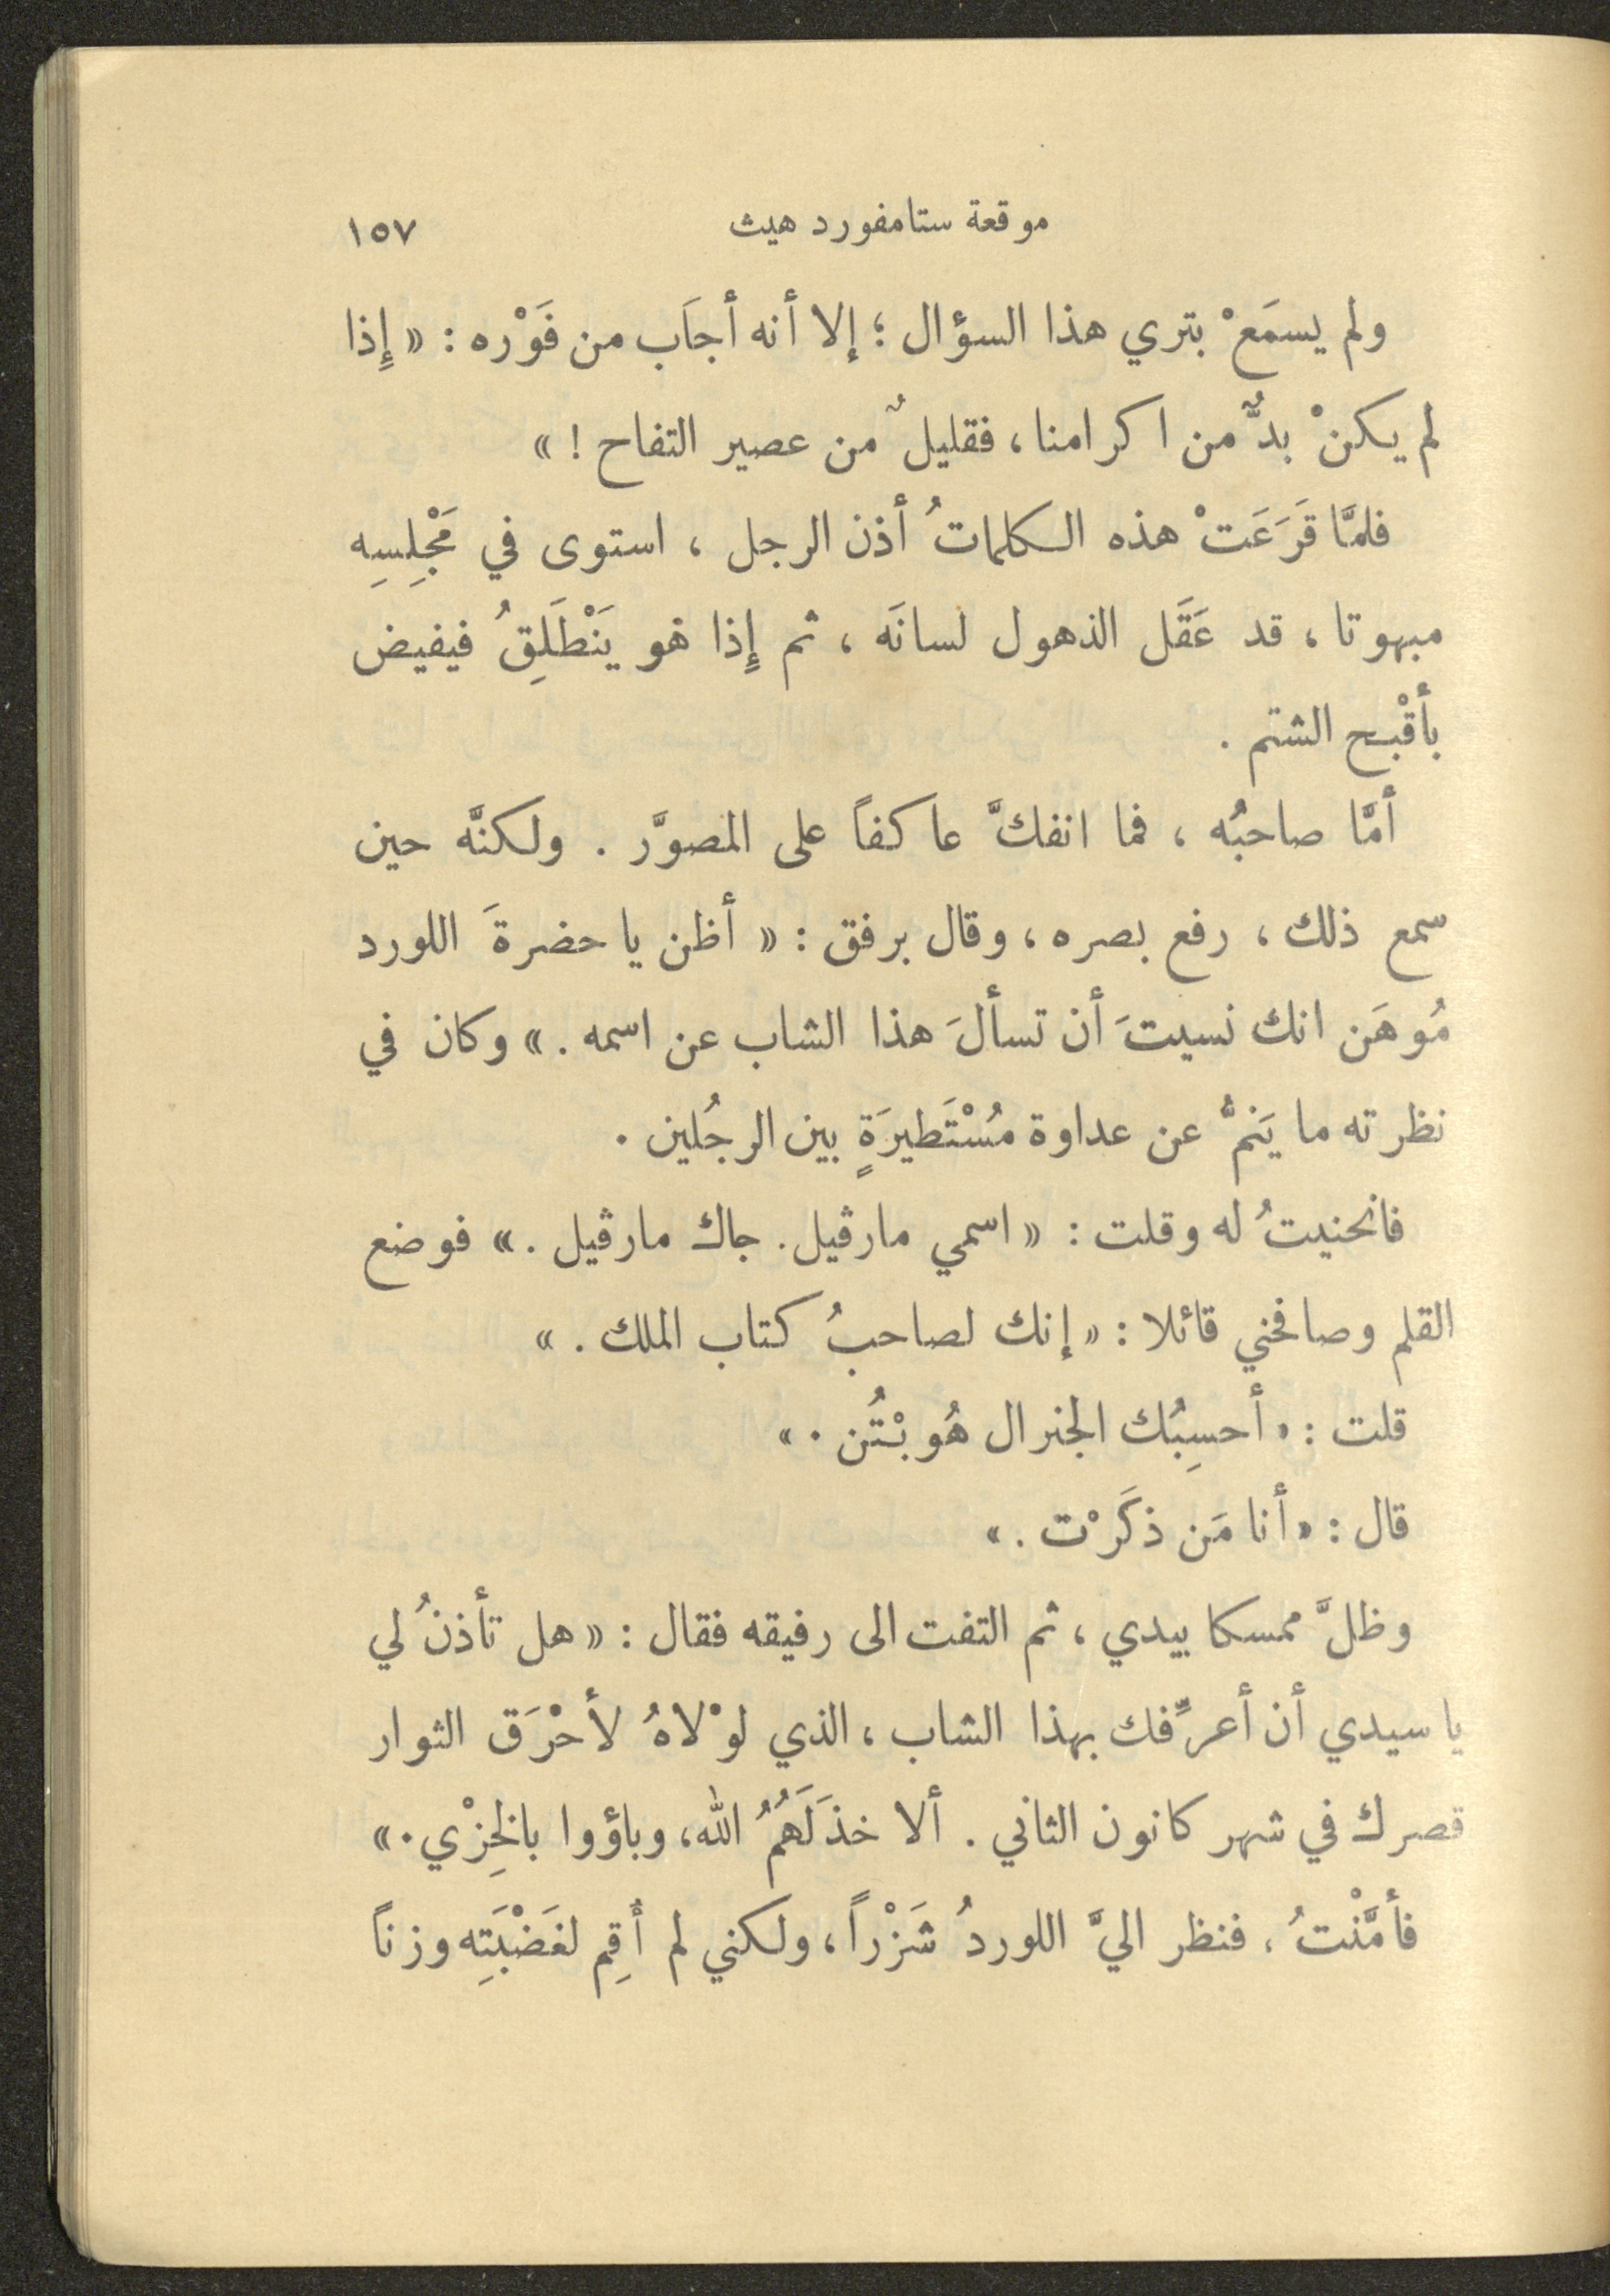 موقعة ستامفورد هيث ١٥٧
ولم يسمَعْ بتري هذا السؤال ؛ إلا أنه أجاَب من فَوْره : « إِذا
لم يكنْ بدٌّ من اكرامنا ، فقليلٌ من عصير التفاح ! »
فلمَّا قَرَعَتْ هذه الكلماتُ أذن الرجل ، استوى في مَجْلِسِه
مبهوتا ، قد عَقَل الذهول لسانَه ، ثم إِذا هو يَنْطَلِقُ فيفيض
بأقْبح الشتم .
أمَّا صاحبُه ، فما انفكَّ عاكفاً على المصوَّر . ولكنَّه حين
سمع ذلك ، رفع بصره ، وقال برفق : « أظن يا حضرةَ اللورد
مُوهَن انك نسيتَ أن تسألَ هذا الشاب عن اسمه . » وكان في
نظرته ما يَنمُّ عن عداوة مُسْتَطيرَةٍ بين الرجُلين .
فانحنيتُ له وقلت : « اسمي مارڤيل . جاك مارڤيل . » فوضع
القلم وصافحني قائلا : « إنك لصاحبُ كتاب الملك . »
قلت : « أحسِبُك الجنرال هُوبْتُن . »
قال : « أنا مَن ذكَرْت . »
وظلَّ ممسكا بيدي ، ثم التفت الى رفيقه فقال : « هل تأذنُ لي
يا سيدي أن أعرِّفك بهذا الشاب ، الذي لوْلاهُ لأحْرَق الثوار
قصرك في شهر كانون الثاني . ألا خذَلَهُمُ الله ، وباؤوا بالخِزْي . »
فأمَّنْتُ ، فنظر اليَّ اللوردُ شَزْراً ، ولكني لم أُقِم لغَضْبَتِه وزناً